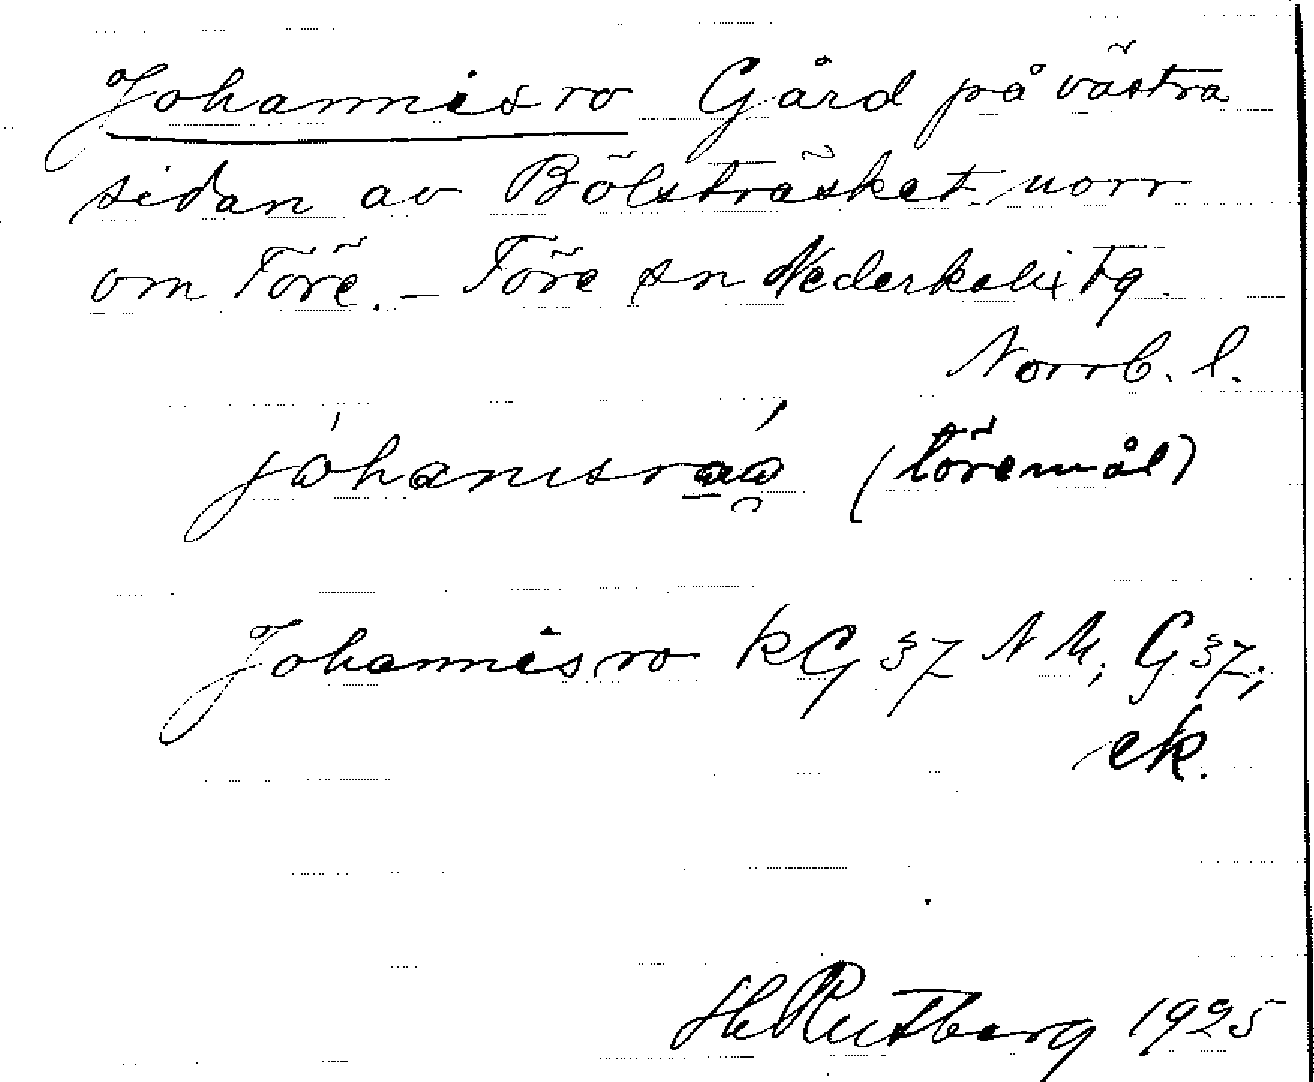 Johannisro Gård på västra
sidan av Bölsträsket norr
om Töre. – Töre sn Nederkalix tg.
Norrb. l.
(töremål)
Johannisro kG 37 NM; G 37;
ek.
H Rutberg 1925